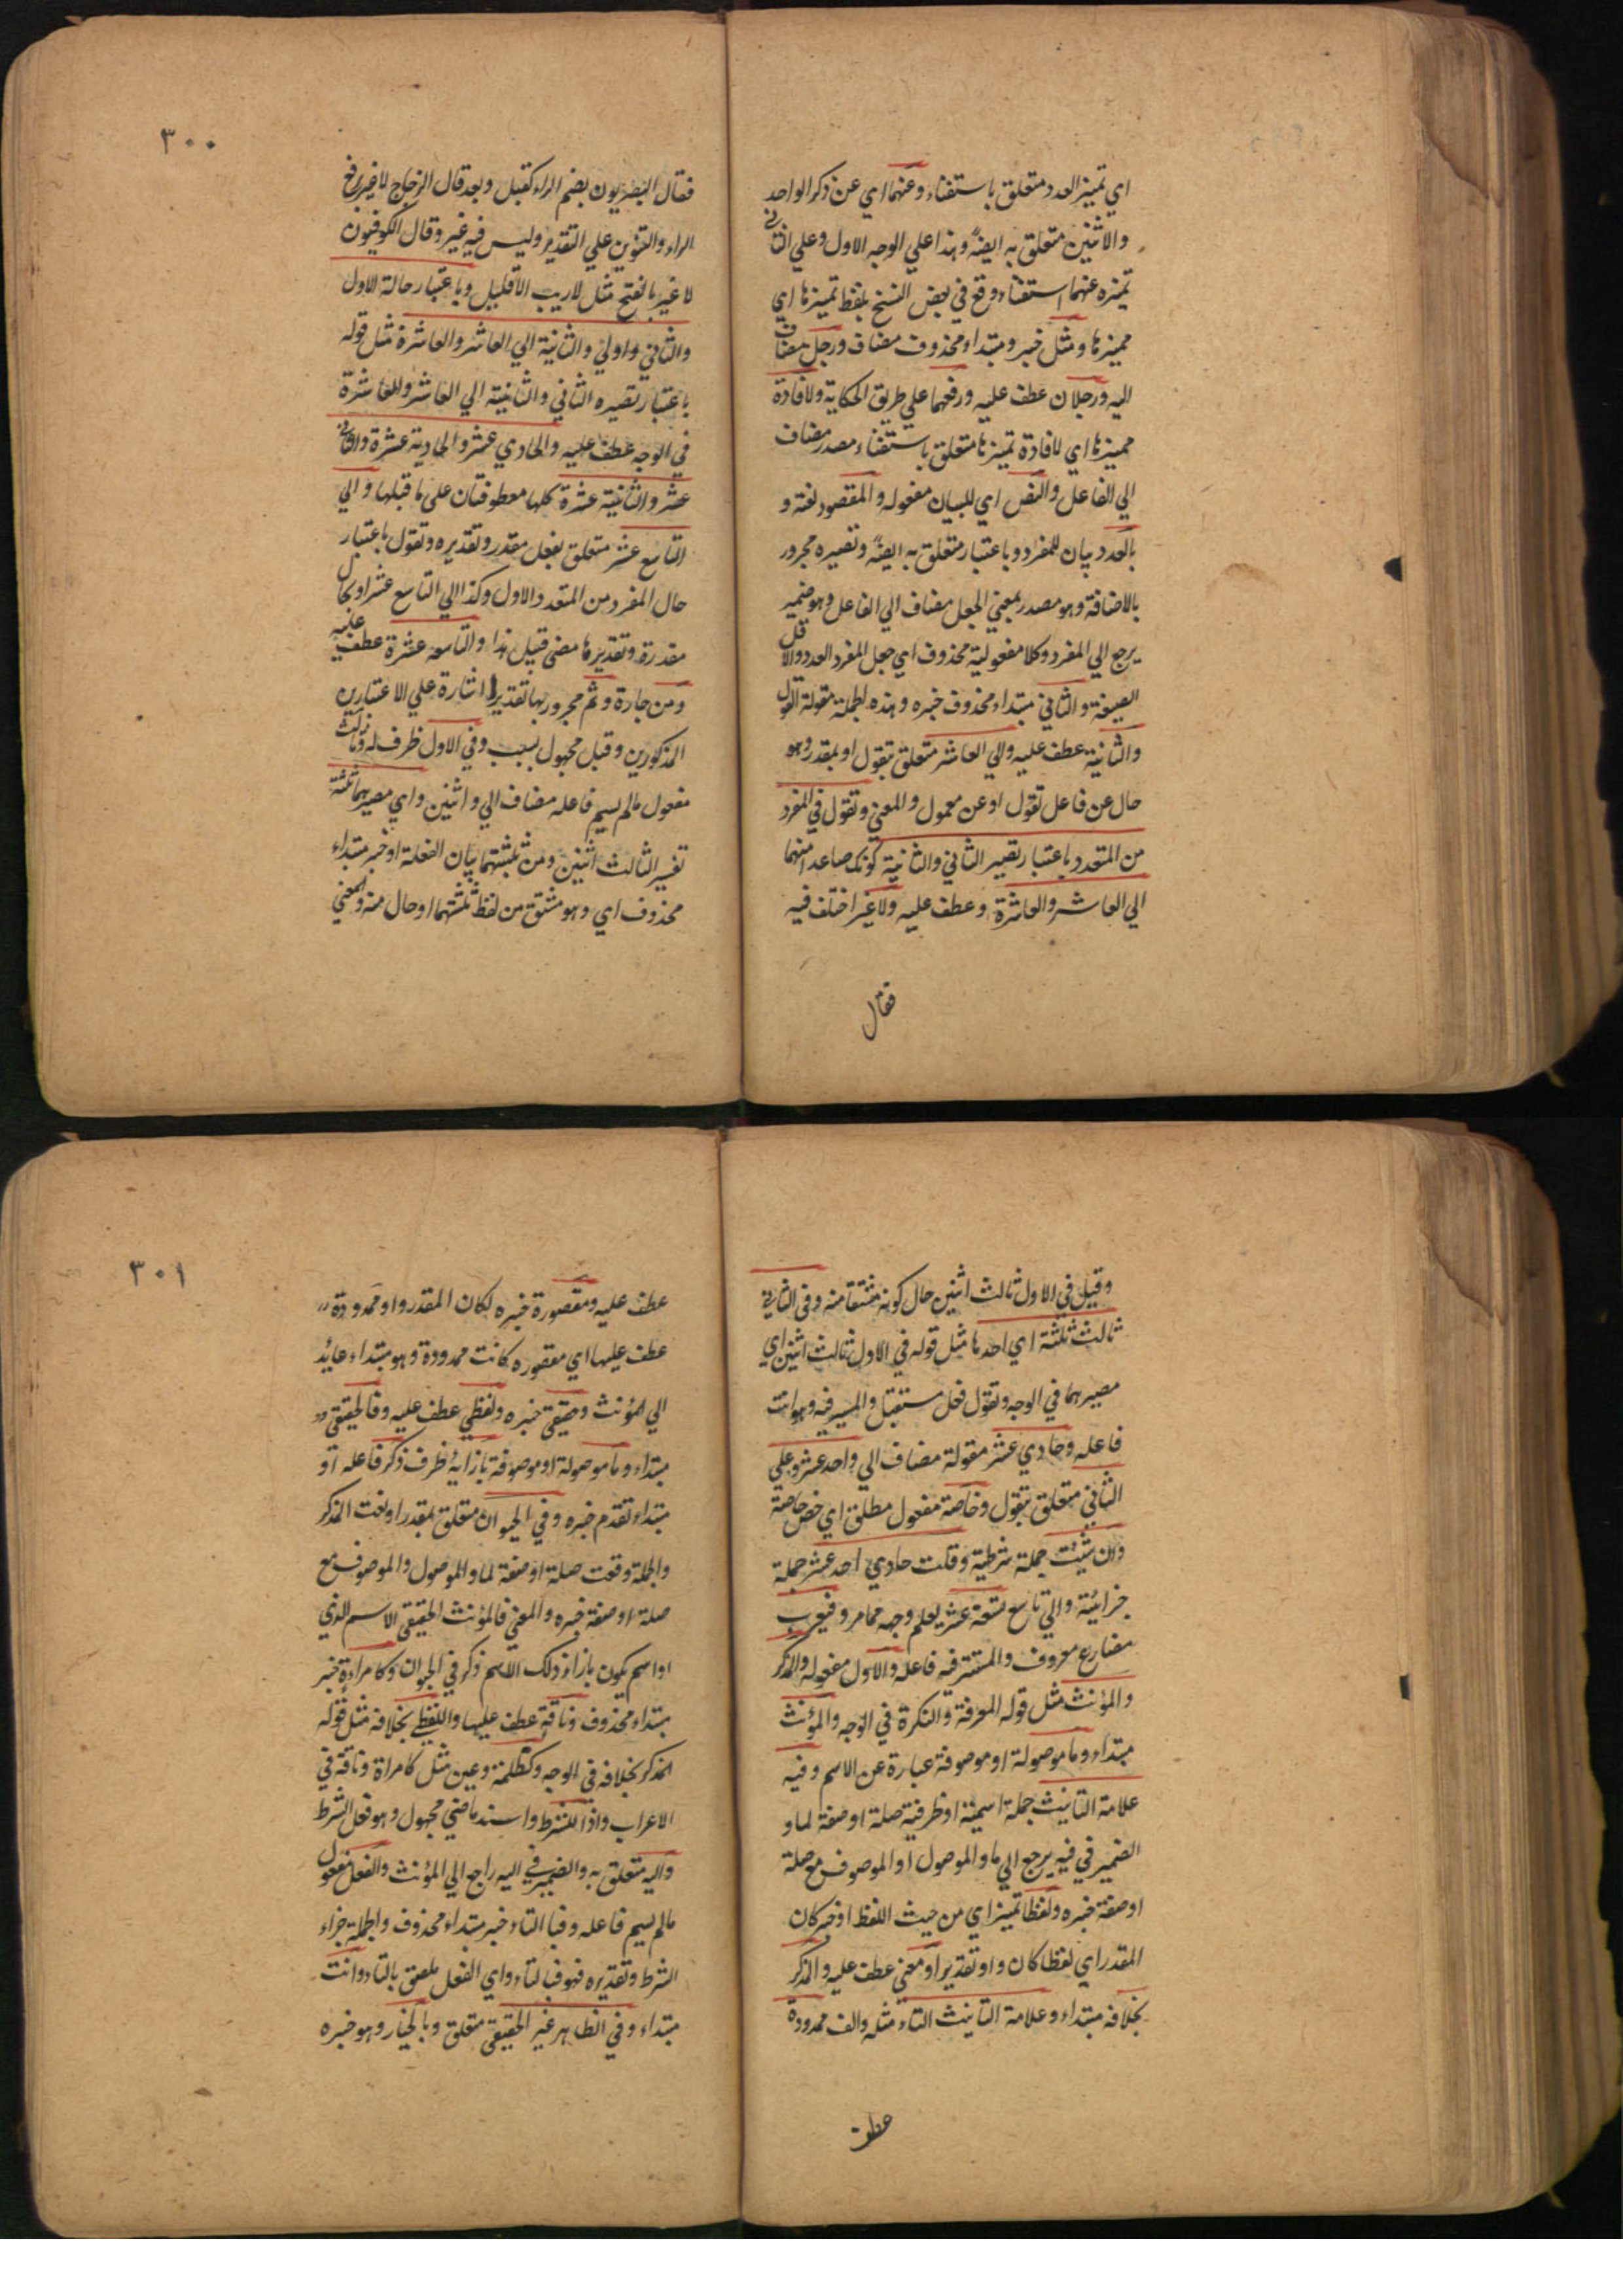 اي تميز العدد متعلق باستغناء وعنهما اي عن ذكر الواحد
والاثنين متعلق به ايضا وهذا علي الوجه الاول وعلي الثاني
تميزه عنهما استغناء وقع في بعض النسخ بلفظ تميزها اي
مميزها ومثل خبر ومبتداء محذوف مضاف ورجل مضاف
اليه ورجلان عطف عليه ورفعهما علي طريق الحكاية ولافادة
مميزها اي لافادة تميزها متعلق باستغناء مصدر مضاف
الي الفاعل والنص اي للبيان مفعوله والمقصود لغة و
بالعدد بيان للمفرد وباعتبار متعلق به ايضا وتصيره مجرور
بالاضافة وهو مصدر بمعني الجعل مضاف الي الفاعل وهو ضمير
يرجع الي المفرد وكلا مفعوليه محذوف اي جعل المفرد العدد والاقل
الصيغة والثاني مبتداء محذوف خبره وهذه الجملة مقولة القول
والثانية عطف عليه والي العاشر متعلق بتقول او بمقدر وهو
حال عن فاعل تقول او عن معمول والمعني وتقول في المفرد
من المتعدد باعتبار تصيير الثاني والثانية كونك صاعدا منهما
الي العاشر والعاشرة وعطف عليه ولا غير اختلف فيه
فقال
٣٠٠
فقال البصريون بضم الراء كقبل وبعد قال الزجاج لا غير برفع
الراء والتنوين علي التقدير وليس فيه غير وقال الكوفيون
لا غير بالفتح مثل لا ريب الا قليل وباعتبار حالة الاول
والثاني واولي والثانية الي العاشر والعاشرة مثل قوله
باعتبار تصيره الثاني والثانية الي العاشر والعاشرة
في الوجه عطف عليه والحادي عشر والحادية عشرة والثاني
عشر والثانية عشرة كلها معطوفتان علي ما قبلها والي
التاسع عشر متعلق بفعل مقدر وتقديره وتقول باعتبار
حال المفرد من المتعدد الاول وكذا الي التاسع عشر او بحال
مقدرة وتقديرها مضي قبيل هذا والتاسعه عشرة عطف عليه
ومن جارة وثم مجرور بها تقديرا اشارة علي الاعتبارين
المذكورين وقيل مجهول بسبب وفي الاول ظرف له وثالث
مفعول مالم يسم فاعله مضاف الي واثنين واي مصيرهما ثلثة
تفسير الثالث اثنين ومن ثلثتهما بيان الفعلة او خبر مبتداء
محذوف اي وهو مشتق من لفظ ثلثتهما او حال منه والمعني
وقيل في الاول ثالث اثنين حال كونه مشتقا منه وفي الثاني
ثالث ثلثة اي احدها مثل قوله في الاول ثالث اثنين اي
مصيرهما في الوجه وتقول فعل مستقبل والمستتر فيه وهو انت
فاعله وحادي عشر مقولة مضاف الي واحد عشر وعلي
الثاني متعلق بتقول وخاصة مفعول مطلق اي خص خاصة
وان شئت جملة شرطية وقلت حادي احد عشر جملة
جزائية والي تاسع تسعة عشر يعلم وجهه مما مر وفيعرب
مضارع معروف والمستتر فيه فاعله والاول مفعوله والمذكر
والمؤنث مثل قوله المعرفة والنكرة في الوجه والمؤنث
مبتداء وما موصولة او موصوفة عبارة عن الاسم وفيه
علامة التانيث جملة اسمية او ظرفية صلة او صفة لما و
الضمير في فيه يرجع الي ما والموصول او الموصوف مع صلة
او صفة خبره ولفظا تميز اي من حيث اللفظ او خبر كان
المقدر اي لفظا كان واو تقديرا او معني عطف عليه والمذكر
بخلافه مبتداء وعلامة التانيث التاء مثله والف ممدودة
عطف
٣٠١
عطف عليه ومقصورة خبره لكان المقدر واو ممدودة
عطف عليها اي مقصوره كانت ممدودة وهو مبتداء عايد
الي المؤنث وحقيقي خبره ولفظي عطف عليه وفالحقيقي
مبتداء وما موصولة او موصوفة بازايه ظرف ذكر فاعله او
مبتداء تقدم خبره وفي الحيوان متعلق بمقدر او لغت المذكر
والجملة وقعت صلة او صفة لما والموصول والموصوف مع
صلة او صفة خبره والمعني فالمؤنث الحقيقي الاسم الذي
او اسم يكون بازاء ذلك الاسم ذكر في الحيوان وكامراءة خبر
مبتداء محذوف وناقة عطف عليها واللفظي بخلافه مثل قوله
المذكر بخلافه في الوجه وكظلمة وعين مثل كامراة وناقة في
الاعراب واذا للشرط واسند ماضي مجهول وهو فعل الشرط
واليه متعلق به والضمير في اليه راجع الي المؤنث والفعل مفعول
مالم يسم فاعله وفبالتاء خبر مبتداء محذوف والجملة جزاء
الشرط وتقديره فهو فبالتاء واي الفعل ملصق بالتاء وانت
مبتداء وفي الظاهر غير الحقيقي متعلق وبالخيار وهو خبره